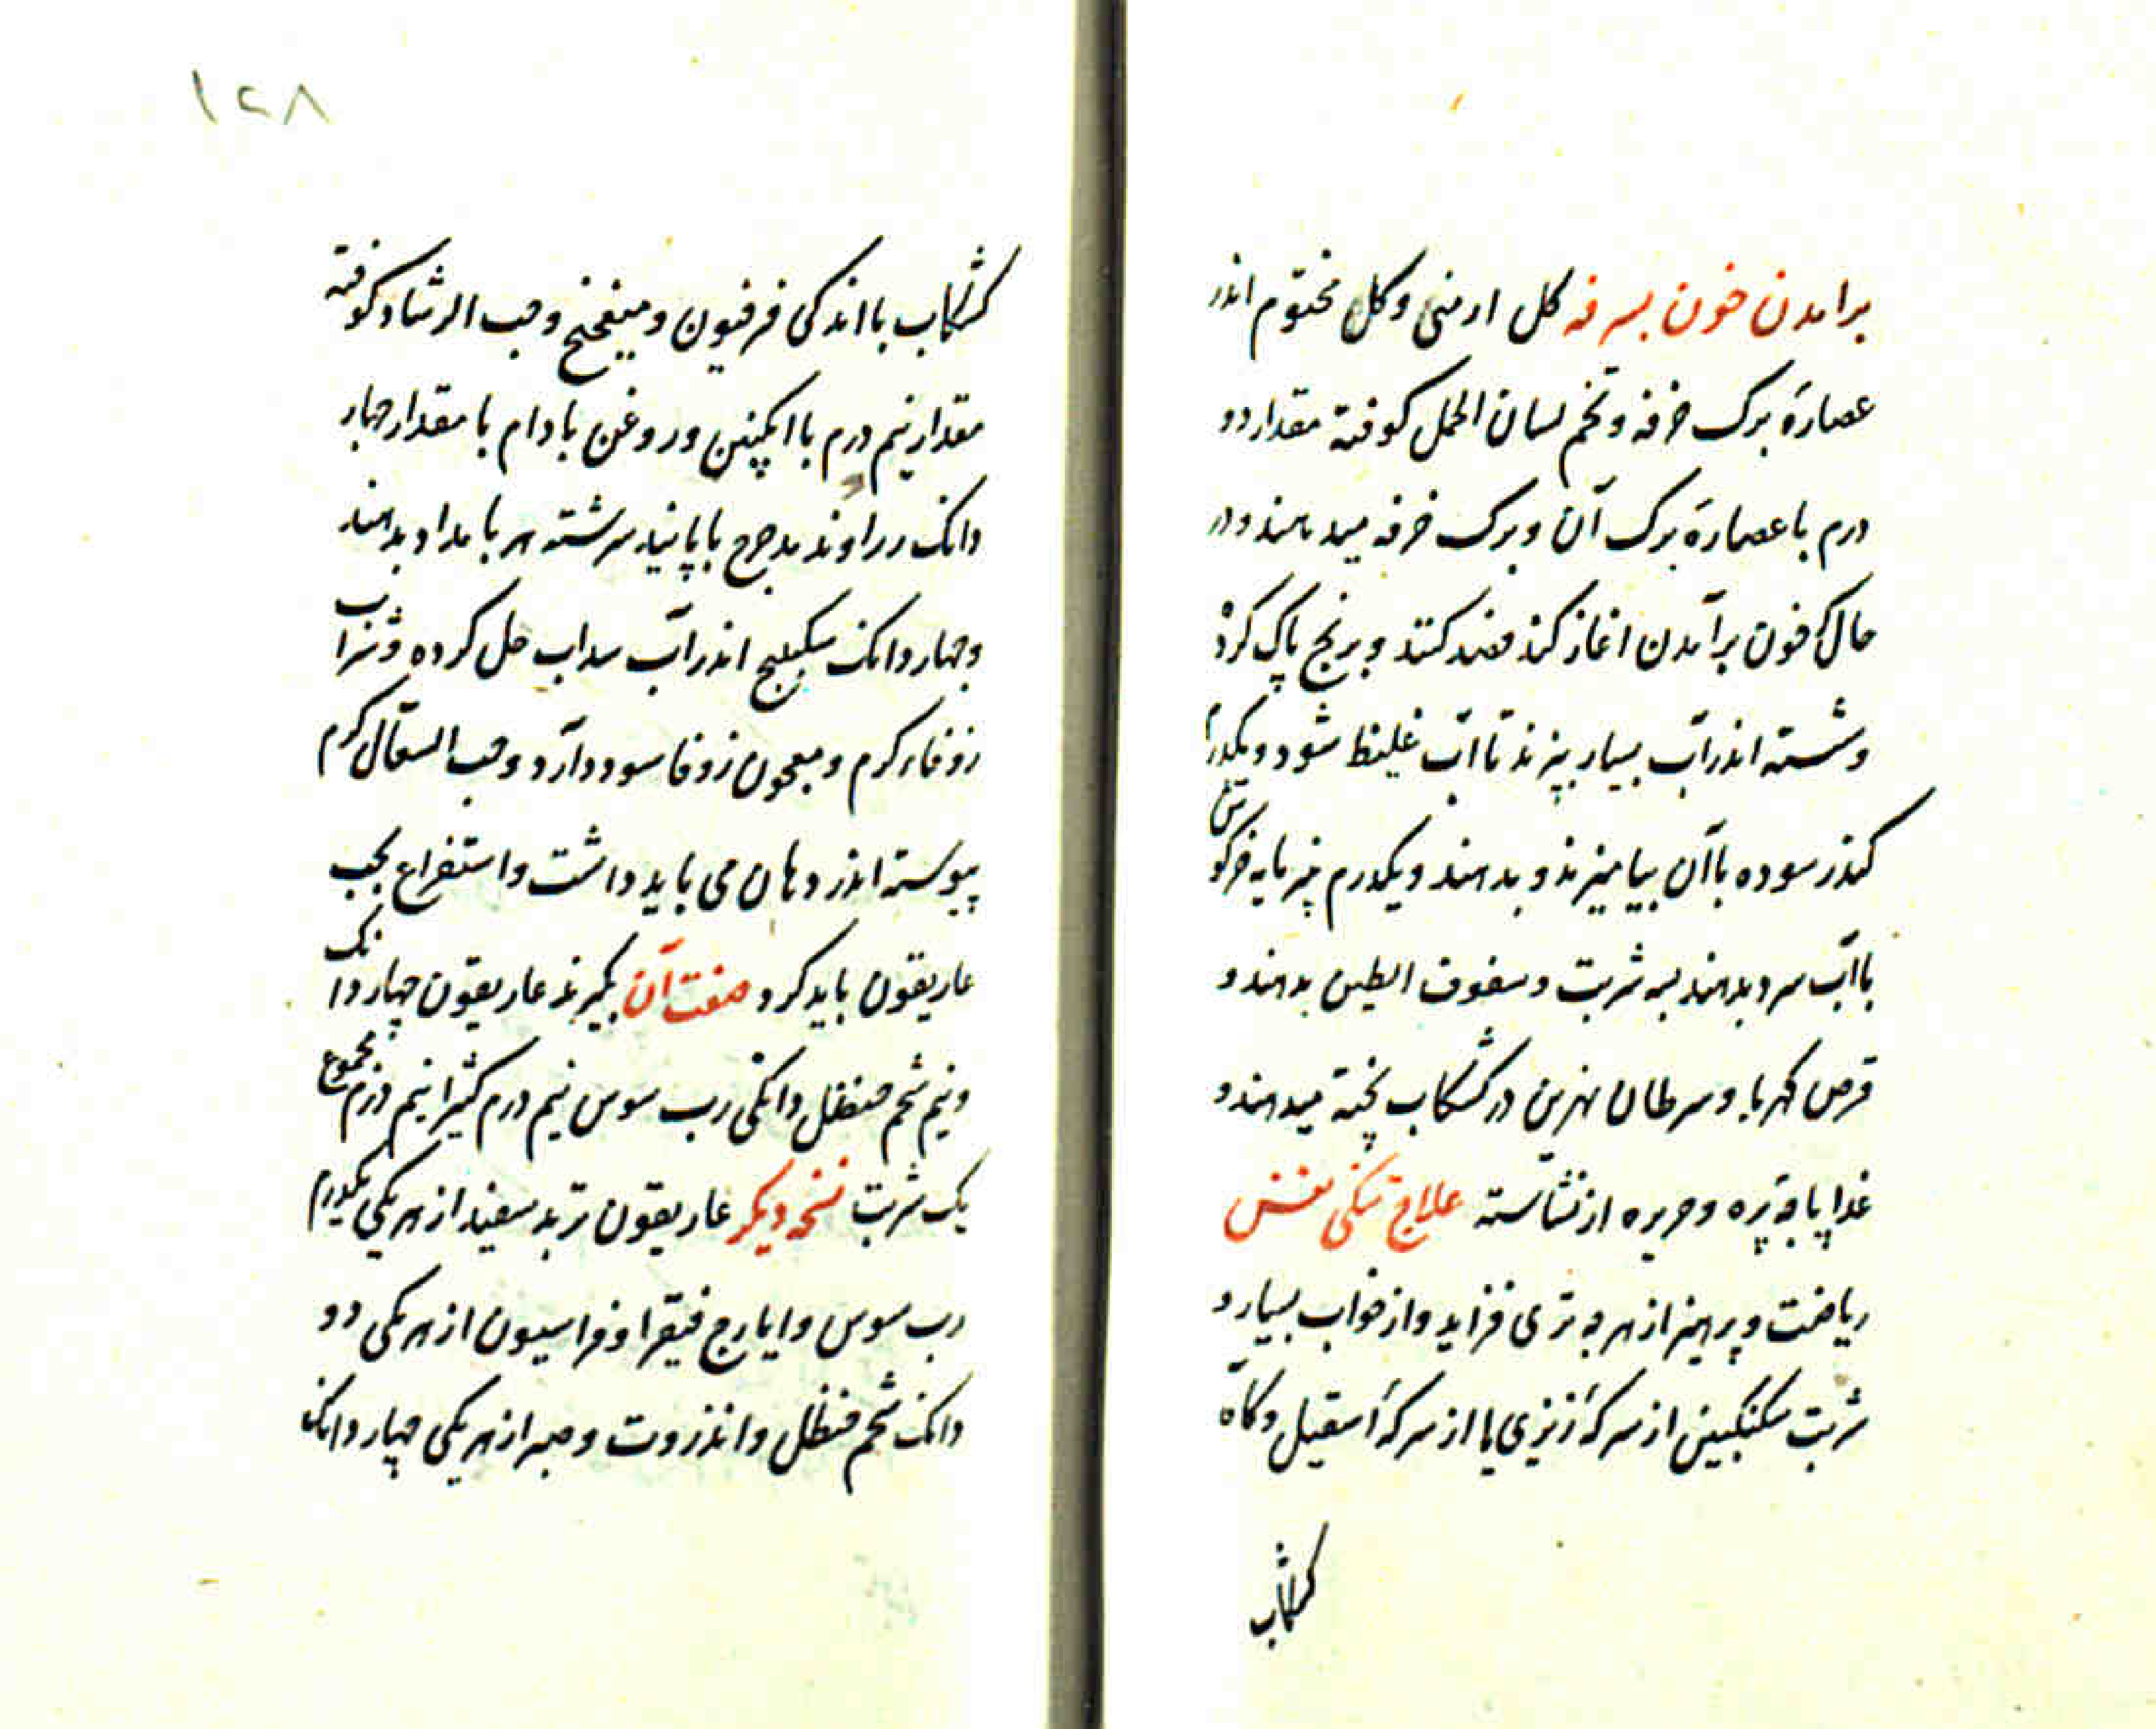 برامدن خون بسرفه کل ارمنی وکل مختوم اندر
عصارهٔ برک خرفه وتخم لسان الحمل کوفته مقدار دو
درم با عصارهٔ برک آن وبرک خرفه میدهند ودر
حال کخون برآمدن اغاز کند فصد کنند وبرنج پاک کرده
وشسته اندرآب بسیار بپزند تا آب غلیظ شود ویکدرم
کندر سوده باآن بیامیزند و بدهند ویکدرم پنیرمایه خرکوش
باآب سرد بدهند بسه شربت وسفوف الطین بدهند و
قرص کهربا وسرطان نهرین درکشکاب پخته میدهند و
غذا پاچه بره وحریره ازنشاسته علاج تنکی نفس
ریاضت وپرهیز ازهرچه تری فزاید وازخواب بسیار و
شربت سکنکبین ازسرکهٔ انزی یا ازسرکهٔ اسقیل وکاه
کشکاب
۱۲۸
کشکاب بااندکی فرفیون ومیفخنج وحب الرشاد کوفته
مقدارنیم درم باانکبین وروغن بادام با مقدارچهار
دانک زراوند مدحرج باپانید سرشته هر بامداد بدهند
وچهاردانک سکبینج اندرآب سداب حل کرده وشراب
زوفاء کرم ومعجون زوفا سود دارد وحب السعال کرم
پیوسته اندر دهان می باید داشت واستفراغ بحب
غاریقون بایدکرد صفت آن بکیرند غاریقون چهاردانک
ونیم شحم حنظل دانکی رب سوس نیم درم کثیرا نیم درم مجموع
یک شربت نسخه دیکر غاریقون تربد سفید ازهریکی یکدرم
رب سوس وایارج فیقرا وفراسیون ازهریکی دو
دانک شحم حنظل وانزروت وصبر ازهریکی چهاردانک